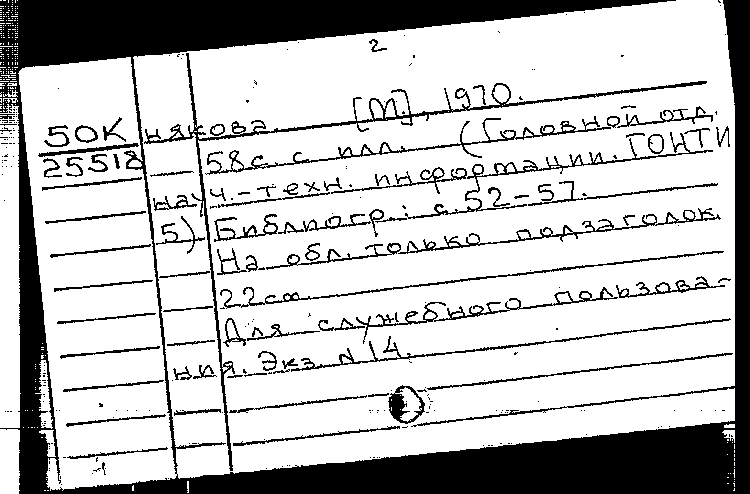 2
50К някова. [М.], 1970.
25518 58с. с илл. (Головной отд.
науч.-техн. информации. ГОНТИ
5) Библиогр.: с.52-57.
На обл. только подзаголок.
22см.
Для служебного пользова-
ния. Экз. N 14.